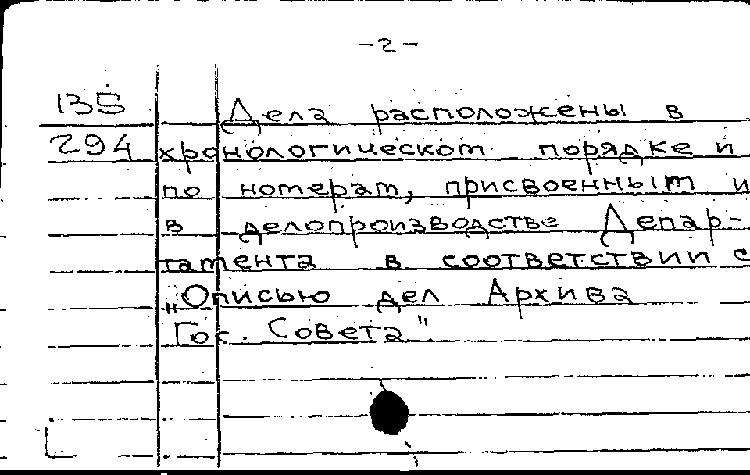 -2-
135 Дела расположены в
294 хронологическом порядке и
по номерам, присвоенным и
в делопроизводстве Депар-
тамента в соответствии с
„Описью дел Архива
Гос. Совета".